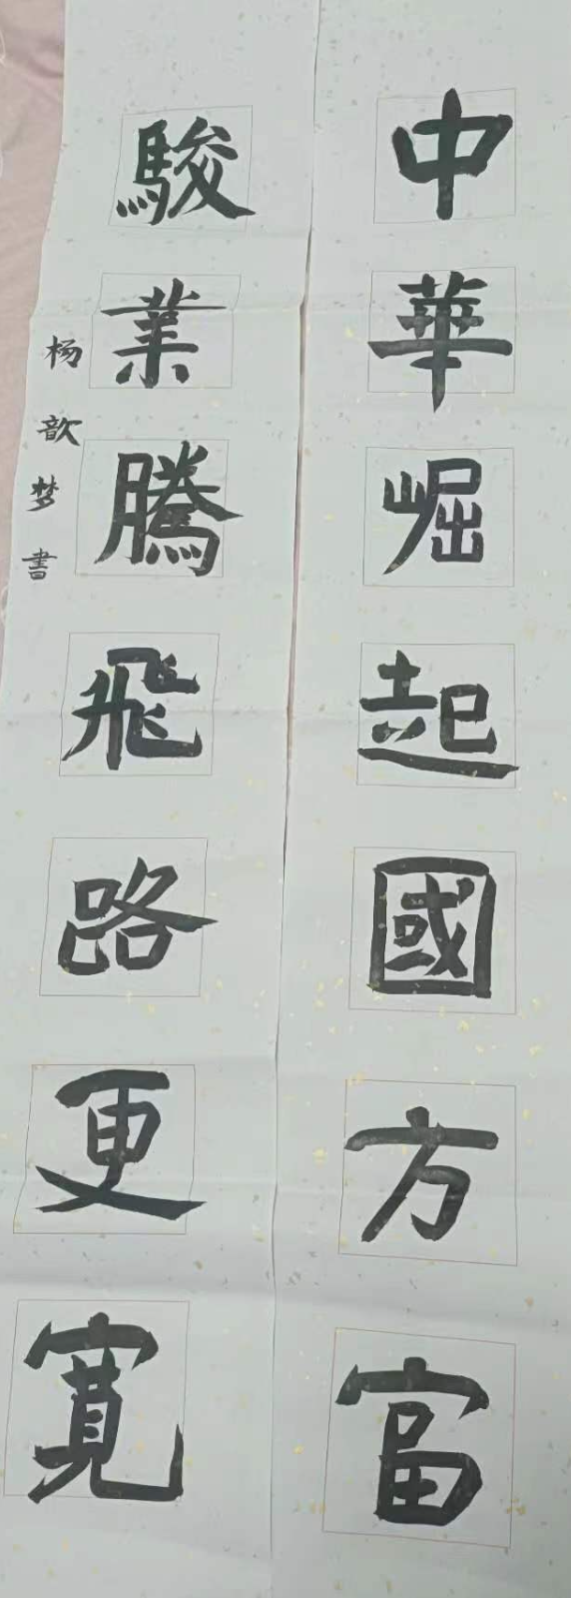 中華崛起國方富
駿業騰飛路更寬
杨歆梦書